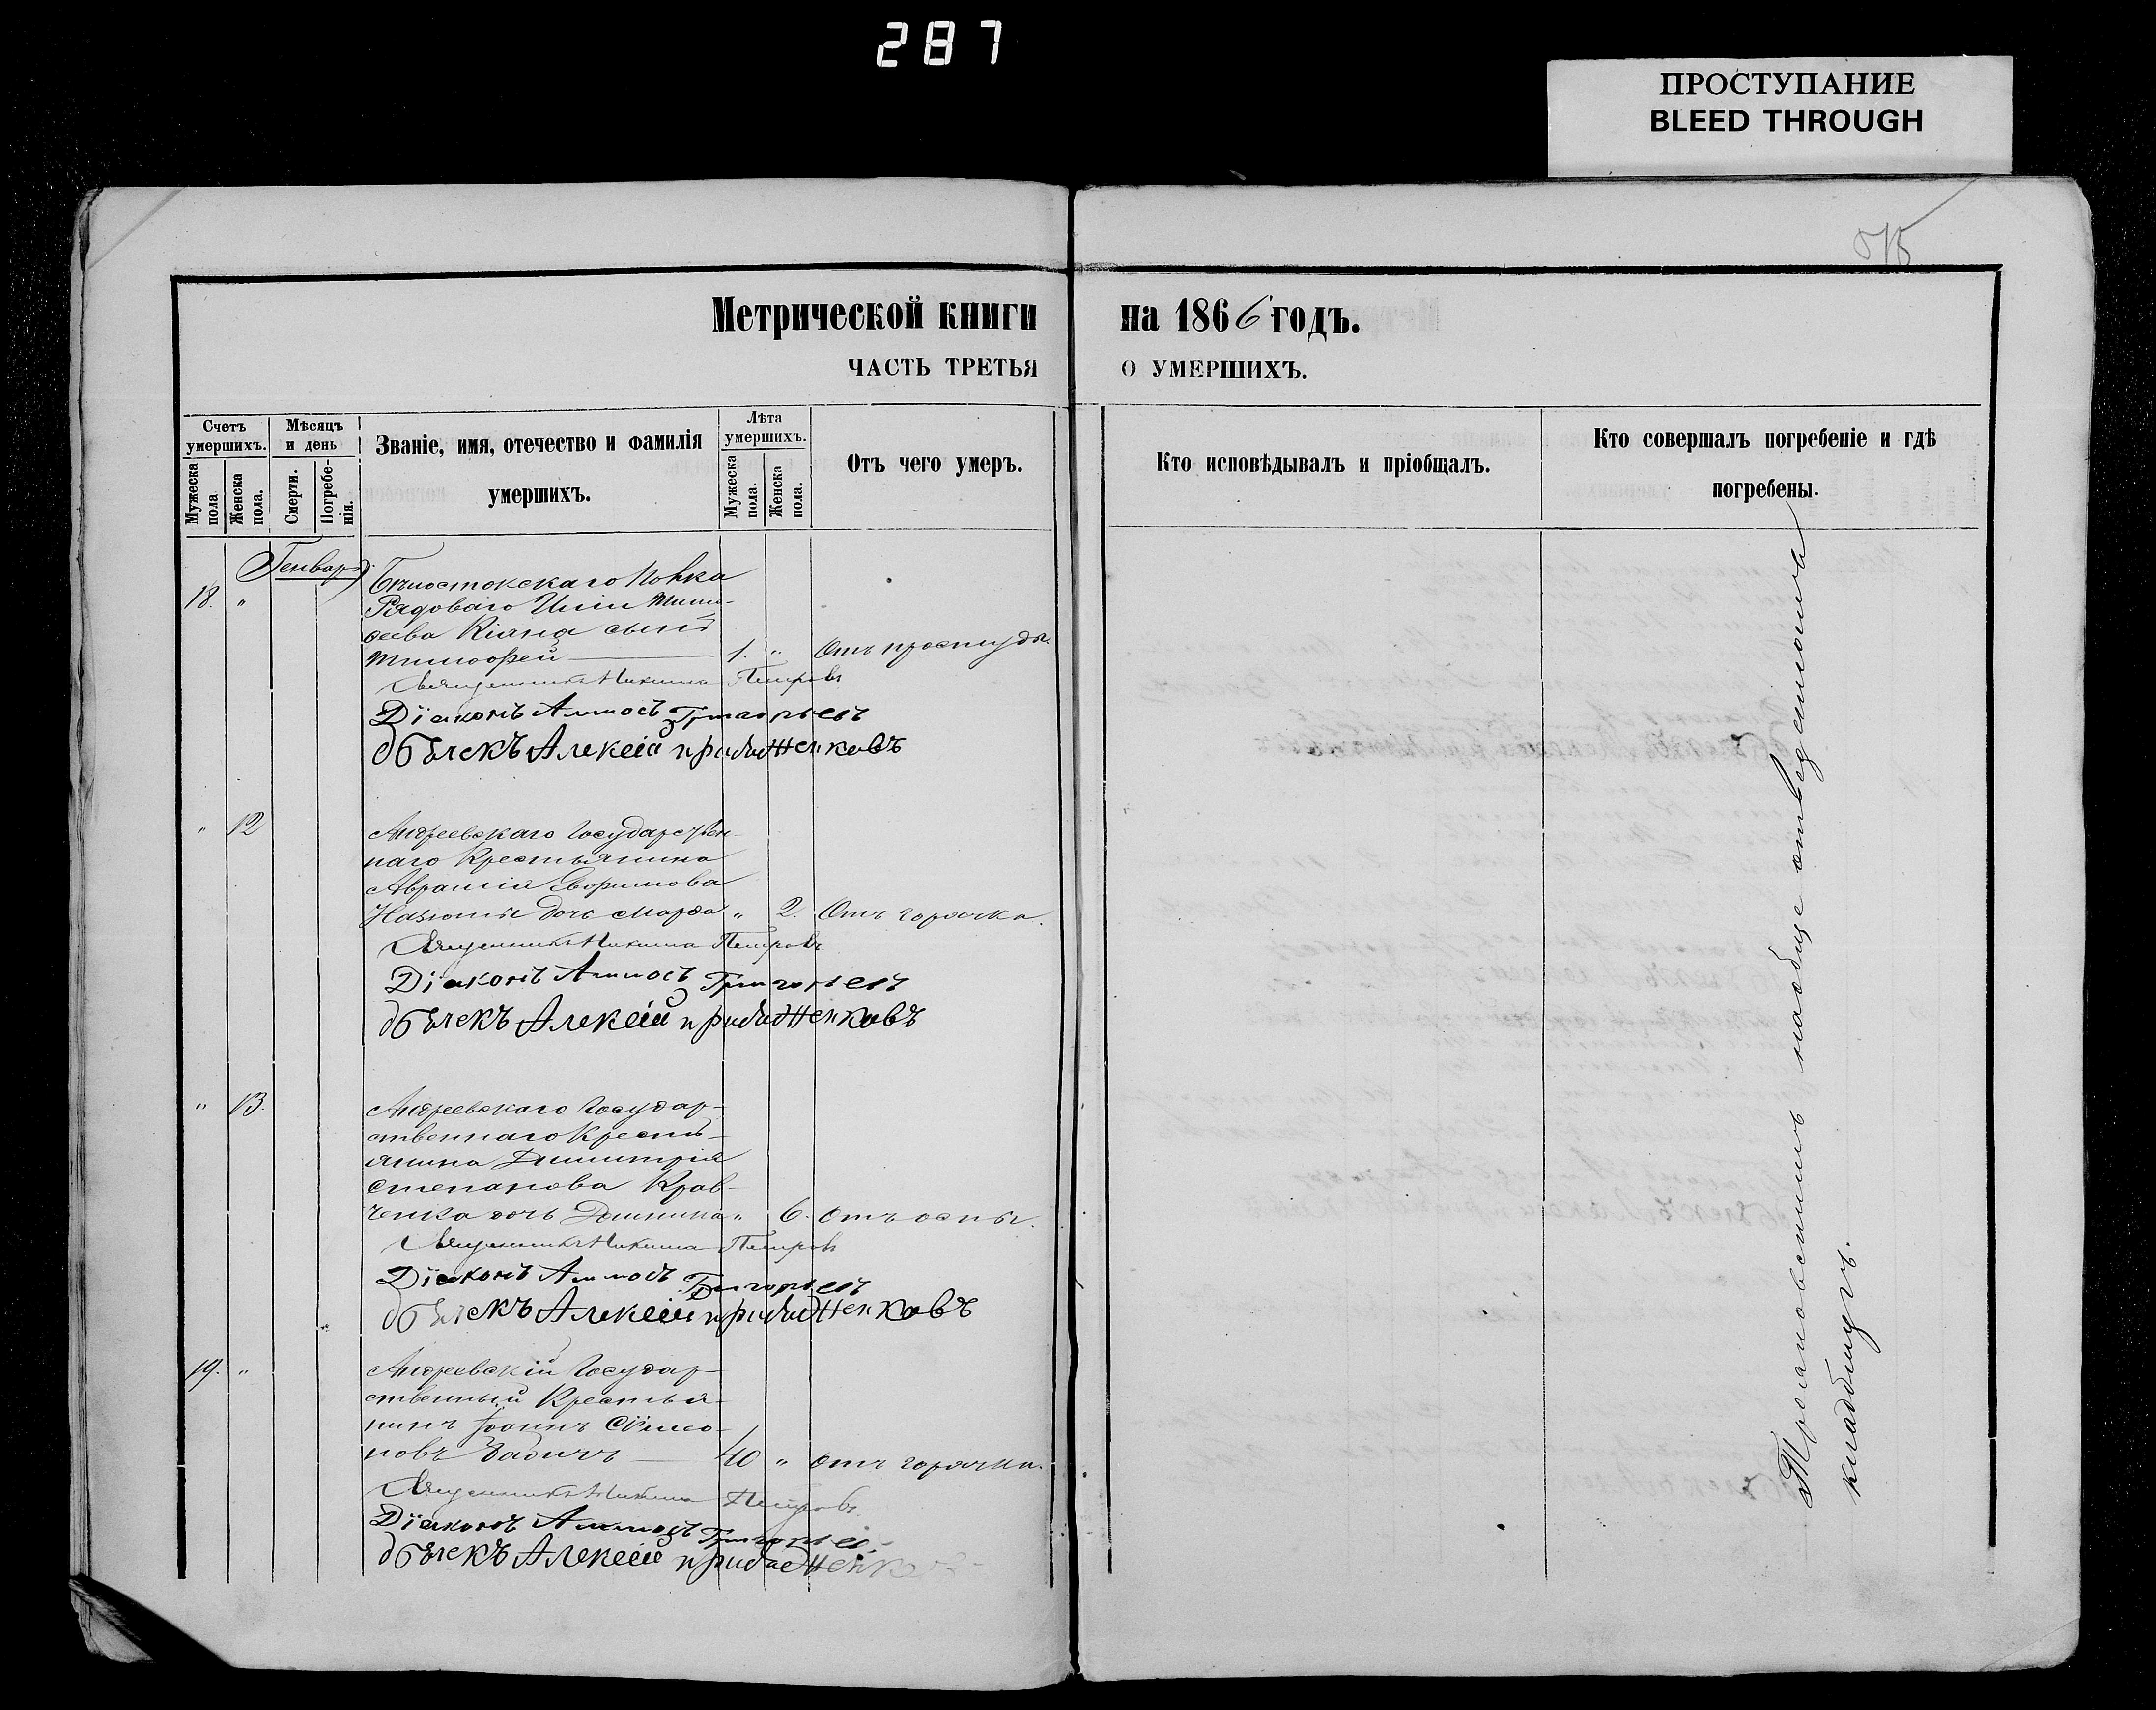 287
ПРОСТУПАНИЕ
BLEED THROUGH
Метрической книги на 1866 годъ.
ЧАСТЬ ТРЕТЬЯ О УМЕРШИХЪ.
Счетъ умершихъ.
Мужеска пола.
Женска пола.
Мѣсяцъ и день
Смерти.
Погребенія.
Званіе, имя, отечество и фамилія
умершихъ.
Лѣта умершихъ.
Мужеска пола.
Женска пола.
Отъ чего умеръ.
Кто исповѣдывалъ и пріобщалъ.
Кто совершалъ погребеніе и гдѣ
погребены.
Генваря
Бѣлостокскаго Полка
18. „ Рядоваго Тимо-
ѳеева сынъ
Тимофей 1. „ Отъ простуды.
Священникъ Никита Петровъ
Діаконъ Аммосъ Григорьевъ
Алексій
„ 12 Андреевскаго Государствен-
наго Крестьянина
Аврамія Ефимова
дочь Марфа „ 2. Отъ горячки.
Священникъ Никита Петровъ
Діаконъ Аммосъ Григорьевъ
Алексій
„ 13. Андреевскаго Государ-
ственнаго Кресть-
янина Димитрія
Степанова Крав-
ченка дочь Домникія „ 6. Отъ оспы.
Священникъ Никита Петровъ
Діаконъ Аммосъ Григорьевъ
Алексій
19. „ Андреевскій Государ-
ственный Крестья-
нинъ Іоаннъ Симо-
новъ 40 „ Отъ горячки.
Священникъ Никита Петровъ
Діаконъ Аммосъ Григорьевъ
Алексій
на обще отведенномъ
кладбищѣ.